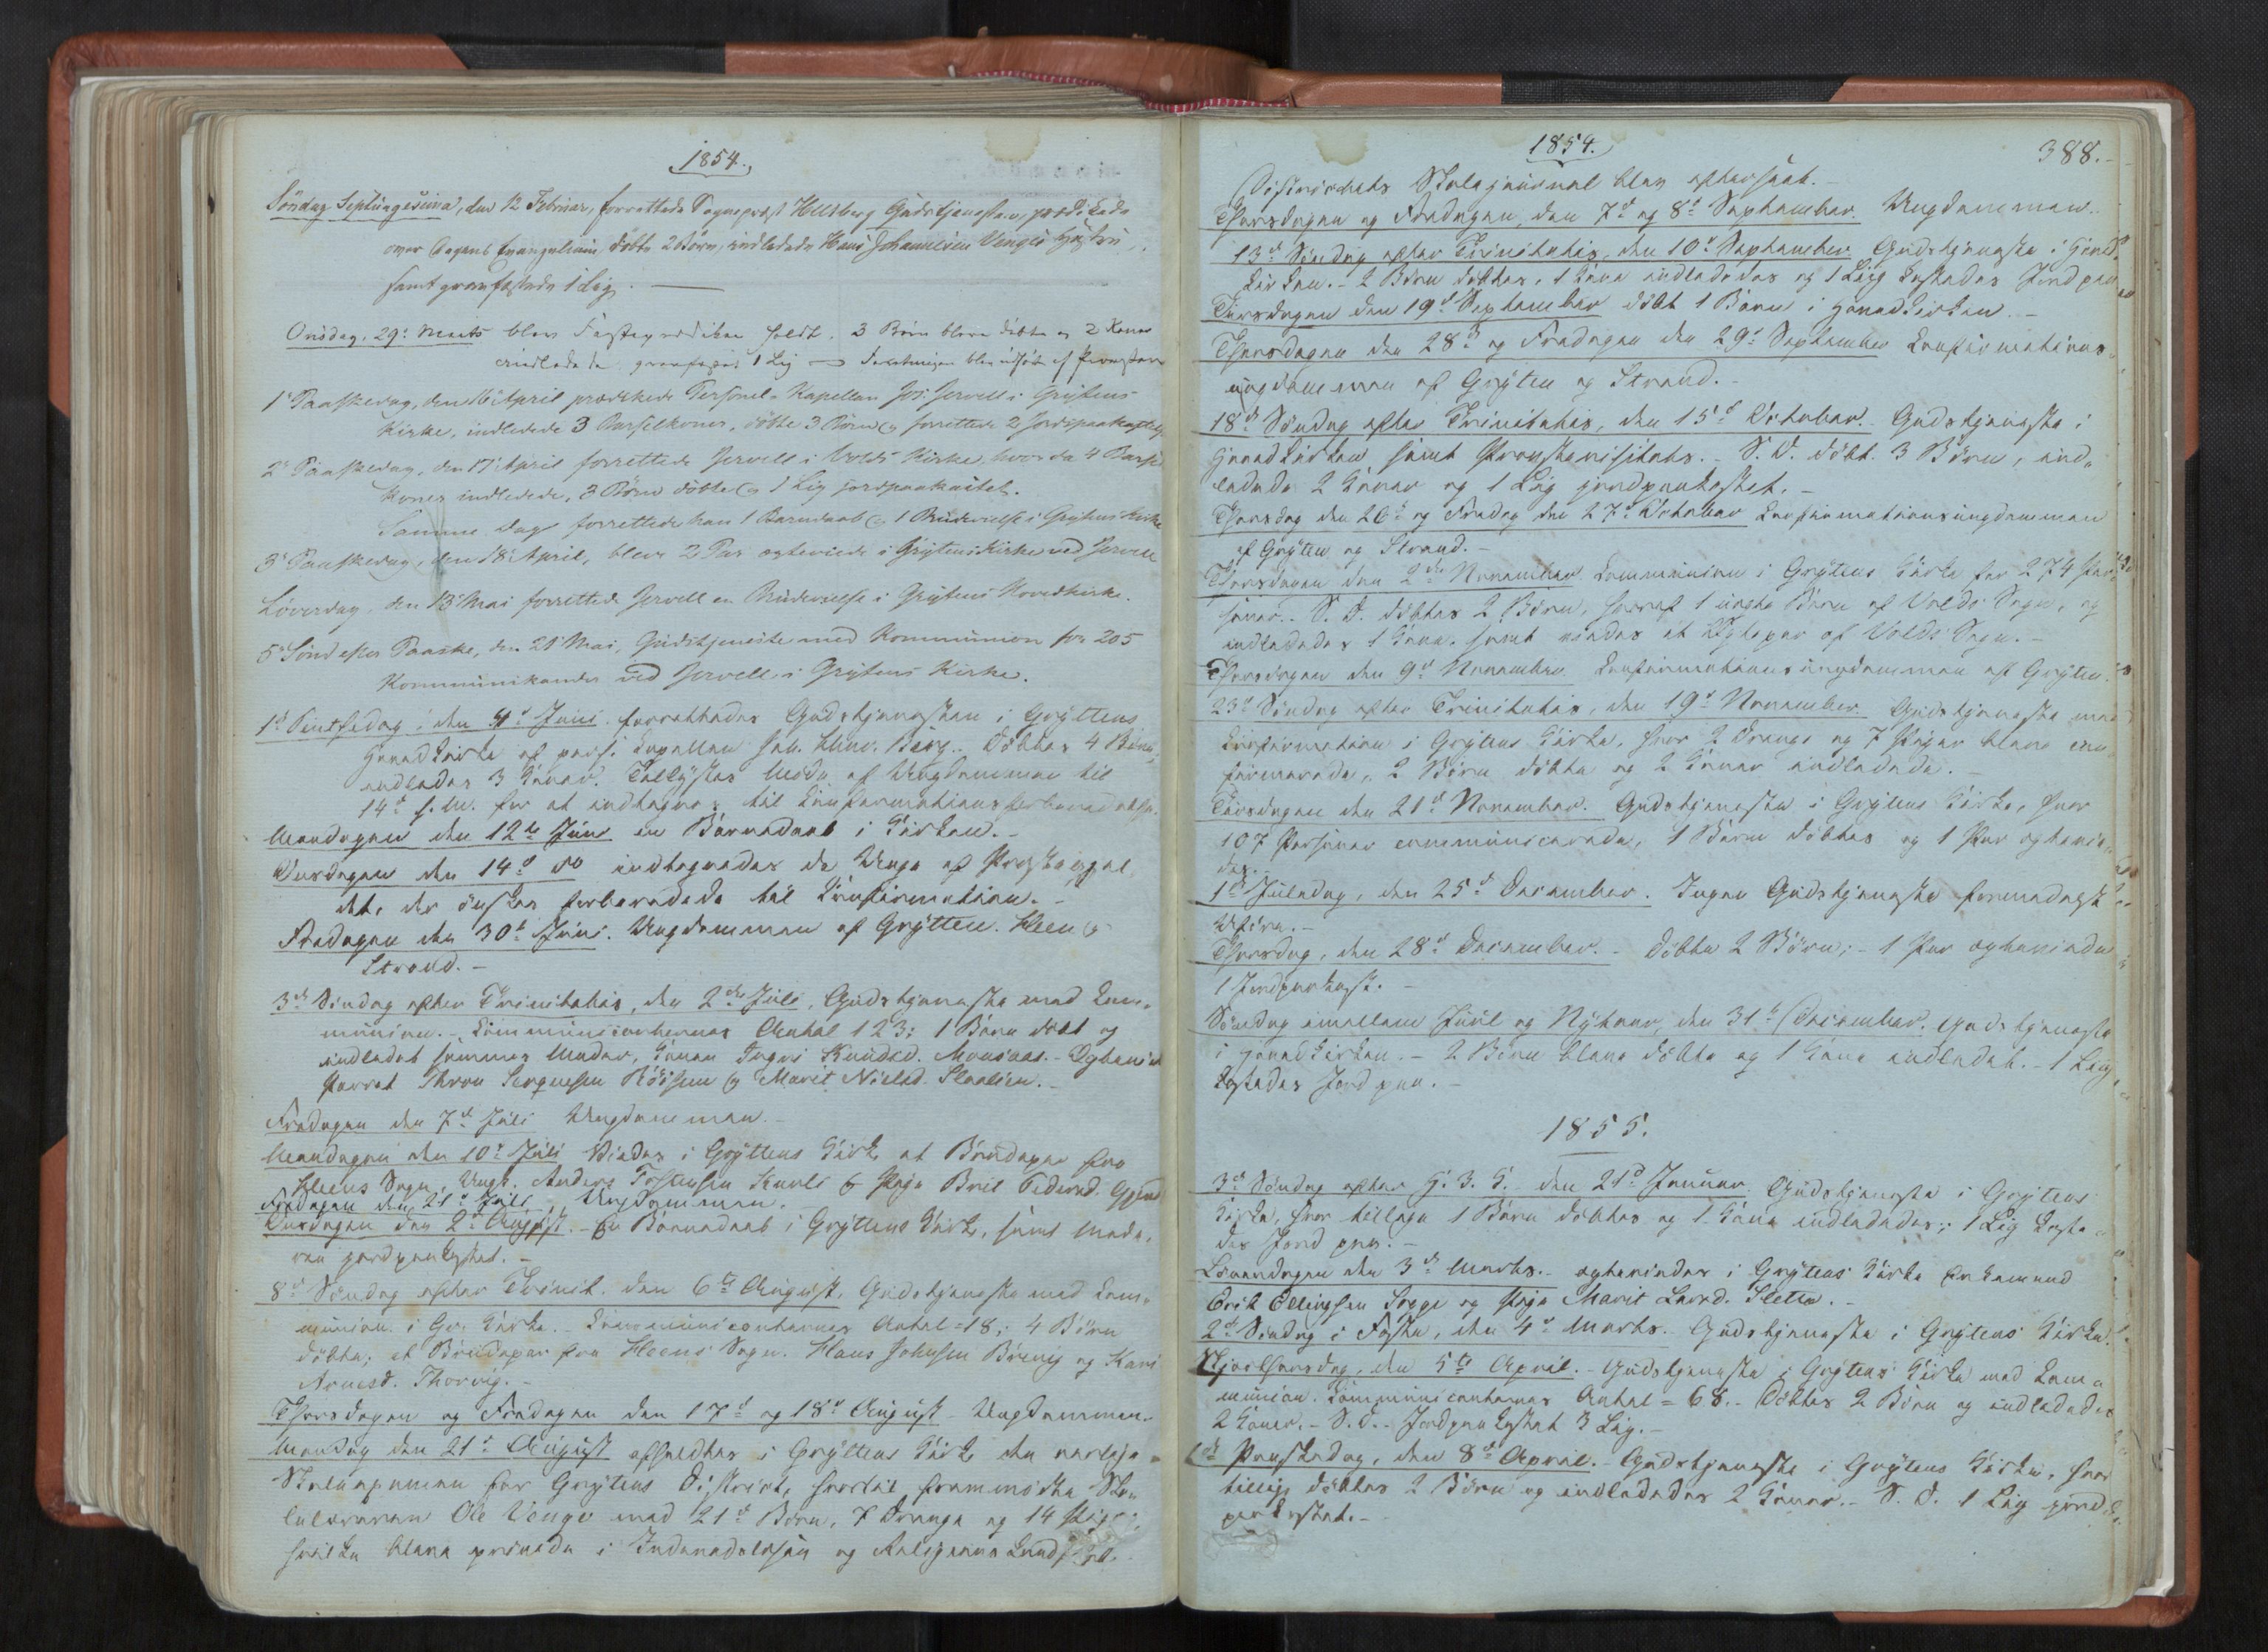 1854.
Söndag Septuagesima, den 12 Februar, forrettede Sognepræst Hilsberg Gudstjenesten, prædikede
over Dagens Evangelium, döbte 2 Börn, indledede
samt gravfæstede 1 Lig.
Onsdag, 29: Marts blev Fasteprædiken holdt. 3 Börn bleve döbte og 2 Koner
indledede, 1 Lig
1ste Paaskedag, den 16 April prædikede Personel-Kapellan Jervell i Gryttens
Kirke, indledede 3 Barselkoner, döbte 3 Börn og forrettede 2 Jordspaakastelser
2den Paaskedag, den 17 April forrettede Jervell i Volds Kirke, hvor da 4 Barsel
koner indledede, 3 Börn döbte og 1 Lig jordpaakastet.
Samme Dag forrettede han 1 Barnedaab og 1 Brudevielse i Gryttens Kirke
3die Paaskedag, den 18 April, bleve 2 Par ægteviede i Gryttens Kirke ved Jervell
Löverdag, den 13 Mai forrettede Jervell en Brudevielse i Gryttens Hovedkirke.
5te Sönd efter Paaske, den 21 Mai, Gudstjeneste med Kommunion for 205
Kommunikanter ved Jervell i Gryttens Kirke.
1st Pintsedag, den 4d Juni forrettedes Gudstjenesten i Gryttens
Hovedkirke af pers: Capellan Joh. Chr. Berg. Döbtes 4 Börn,
indledes 3 Koner. Tillystes Möde af Ungdommen til
14d s. M. for at indtegnes til Confirmationsforberedelse.
Mandagen den 12te Juni en Barnedaab i Kirken.
Onsdagen den 14d do indtegnedes de Unge af Præstegjæl
det, der önskes forberedede til Confirmation.
Fredagen den 30d Juni. Ungdommen af Grytten. Hleen og
Strand.
3die Söndag efter Trinitatis, den 2den Juli, Gudstjeneste med Com-
munion. Communicanternes Antal 123; 1 Barn döbt og
indledet sammes Moder, Konen Inger Knudsd. Monsaas. Ægteviet
Parret Thron Jørgensen Röösen og Marit Nielsd. Slaalien.
Fredagen den 7d Juli Ungdommen.
Mandagen den 10d Juli Viedes i Gryttens Kirke et Brudepar fra
Hleens Sogn, Ungk. Anders Tostensen Kavli & Pige Brit Pedersd.
Fredagen den 21d Juli, Ungdommen.
Onsdagen den 2d August. En Barnedaab i Gryttens Kirke, samt Mode-
ren jordpaakastet.
8d Söndag efter Trinit. den 6te August, Gudstjeneste med Com-
munion i Gr. Kirke. Communicanternes Antal = 18; 4 Börn
döbte; et Brudepar fra Hleens Sogn. Hans Johnsen Brevig og Kari
Arnesd. Thorvig.
Thorsdagen og Fredagen den 17d og 18d August Ungdommen.
Mandag den 21d August afholdtes i Gryttens Kirke den aarlige
Skoleexamen for Gryttens District, hvortil fremmödte Sko-
lelæreren Ole Venge med 21d Börn, 7 Drenge og 14 Piger,
hvilke bleve prövede i Indenadslæsen og Religionskundskab.
1854.
388.
Districtets Skolejournal blev efterseet.
Thorsdagen og Fredagen den 7d og 8d September. Ungdommen.
13d Söndag efter Trinitatis, den 10d September. Gudstjeneste i Hoved-
kirken. 2 Börn döbtes, 1 Kone indlededes og 1 Liig kastedes Jord paa.
Tirsdagen den 19d September döbt 1 Barn i Hovedkirken.
Thorsdagen den 28d og Fredagen den 29d September Confirmations-
ungdommen af Grytten og Strand.
18d Söndag efter Trinitatis, den 15d October. Gudstjeneste i
Hovedkirken samt Provstevisitats. S. D. döbt 3 Börn, ind-
ledede 2 Koner og 1 Lig jordpaakastet.
Thorsdag den 26d og Fredag den 27d October Confirmationsungdommen
af Grytten og Strand.
Thorsdagen den 2den November Communion i Gryttens Kirke for 274 Per-
soner. S. D. döbtes 2 Börn, hvoraf 1 uægte Barn af Volds Sogn, og
indlededes 1 Kone, samt viedes et Ægtepar af Volds Sogn.
Thorsdagen den 9d November Confirmationsungdommen af Grytten.
23d Söndag efter Trinitatis, den 19d November Gudstjeneste med
Confirmation i Gryttens Kirke, hvor 2 Drenge og 7 Piger bleve con-
firmerede, 2 Börn döbte og 2 Koner indledede.
Tirsdagen den 21d November. Gudstjeneste i Gryttens Kirke, hvor
107 Personer communicerede, 1 Barn döbtes og 1 Par ægtevie-
des.
1ste Juledag, den 25d December. Ingen Gudstjeneste formedelst
Uföre.
Thorsdag, den 28d December. Döbte 2 Börn; 1 Par ægteviede
1 Jordpaakast.
Söndag imellem Juul og Nytaar, den 31te December. Gudstjeneste
i Hovedkirken. 2 Börn bleve döbte og 1 Kone indledet. 1 Liig
kastedes Jord paa.
1855.
3d Söndag efter H. 3. K. den 21d Januar. Gudstjeneste i Gryttens
Kirke, hvor tillige 1 Barn döbtes og 1 Kone indlededes; 1 Lig kaste-
des Jord paa.
Löverdagen den 3d Marts. ægteviedes i Gryttens Kirke Enkemand
Erik Ellingsen Sogge og Pige Marit Larsd. Sletta.
2d Söndag i Faste, den 4d Marts. Gudstjeneste i Gryttens Kirke.
Skjærthorsdag, den 5te April. Gudstjeneste i Gryttens Kirke med Com-
munion. Communicanternes Antal = 68. Döbtes 2 Börn og indlededes
2 Koner. S. D. Jordpaakastet 3 Lig.
1ste Paaskedag, den 8d April. Gudstjeneste i Gryttens Kirke, hvor
tillige döbtes 2 Börn og indlededes 2 Koner. S. D. 1 Lig jord
paakastet.